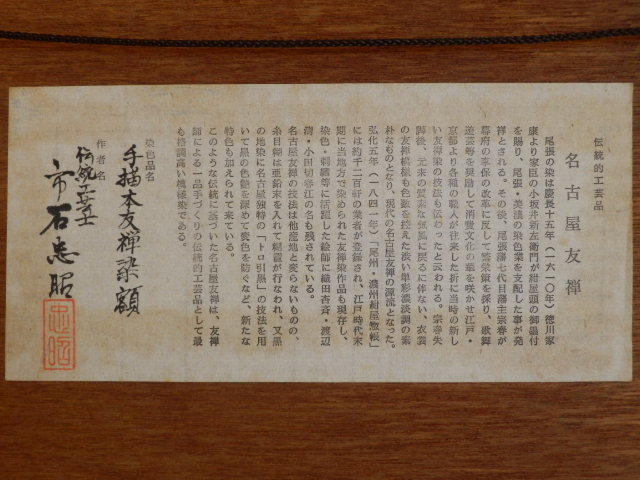 伝統的工芸品
名古屋友禅
尾張の染は慶長十五年(一六一〇年)徳川家
康より家臣の小坂井新左衛門が紺屋頭の御墨付
を賜り、尾張・美濃の染色業を支配した事が発
祥とされる。その後、尾張藩七代目藩主宗春が
幕府の享保の改革に反して繁栄策を採り、歌舞
遊芸等を奨励して消費文化の華を咲かせ江戸・
京都より各種の職人が往来した折に当時の新し
い友禅染の技法も伝わったと云われる。宗春失
脚後、元来の質素な気風に戻るに伴ない、衣裳
の友禅模様も色数を控えた渋い単彩濃淡調の素
朴なものとなり、現代の名古屋友禅の源流となった。
弘化五年(一八四一年)「尾州・濃州紺屋惣帳」
には約千二百軒の業者が登録され、江戸時代末
期に当地方で染められた友禅染作品も現存し、
染色・刺繍等に活躍した絵師に織田杏斎・渡辺
清・小田切春江の名も残されている。
名古屋友禅の技法は他産地と変らないものの、
糸目糊は亜鉛末を入れて糊置が行なわれ、又黒
の地染に名古屋独特の「トロ引黒」の技法を用
いて黒の色艶を深めて変色を防ぐなど、新たな
特色も加えられて来ている。
このような伝統に基づいた名古屋友禅は、友禅
師による一品手づくりの伝統的工芸品として最
も格調高い逸品である。
染色品名
手描本友禅染額
作者名
伝統工芸士
市石忠昭
忠昭